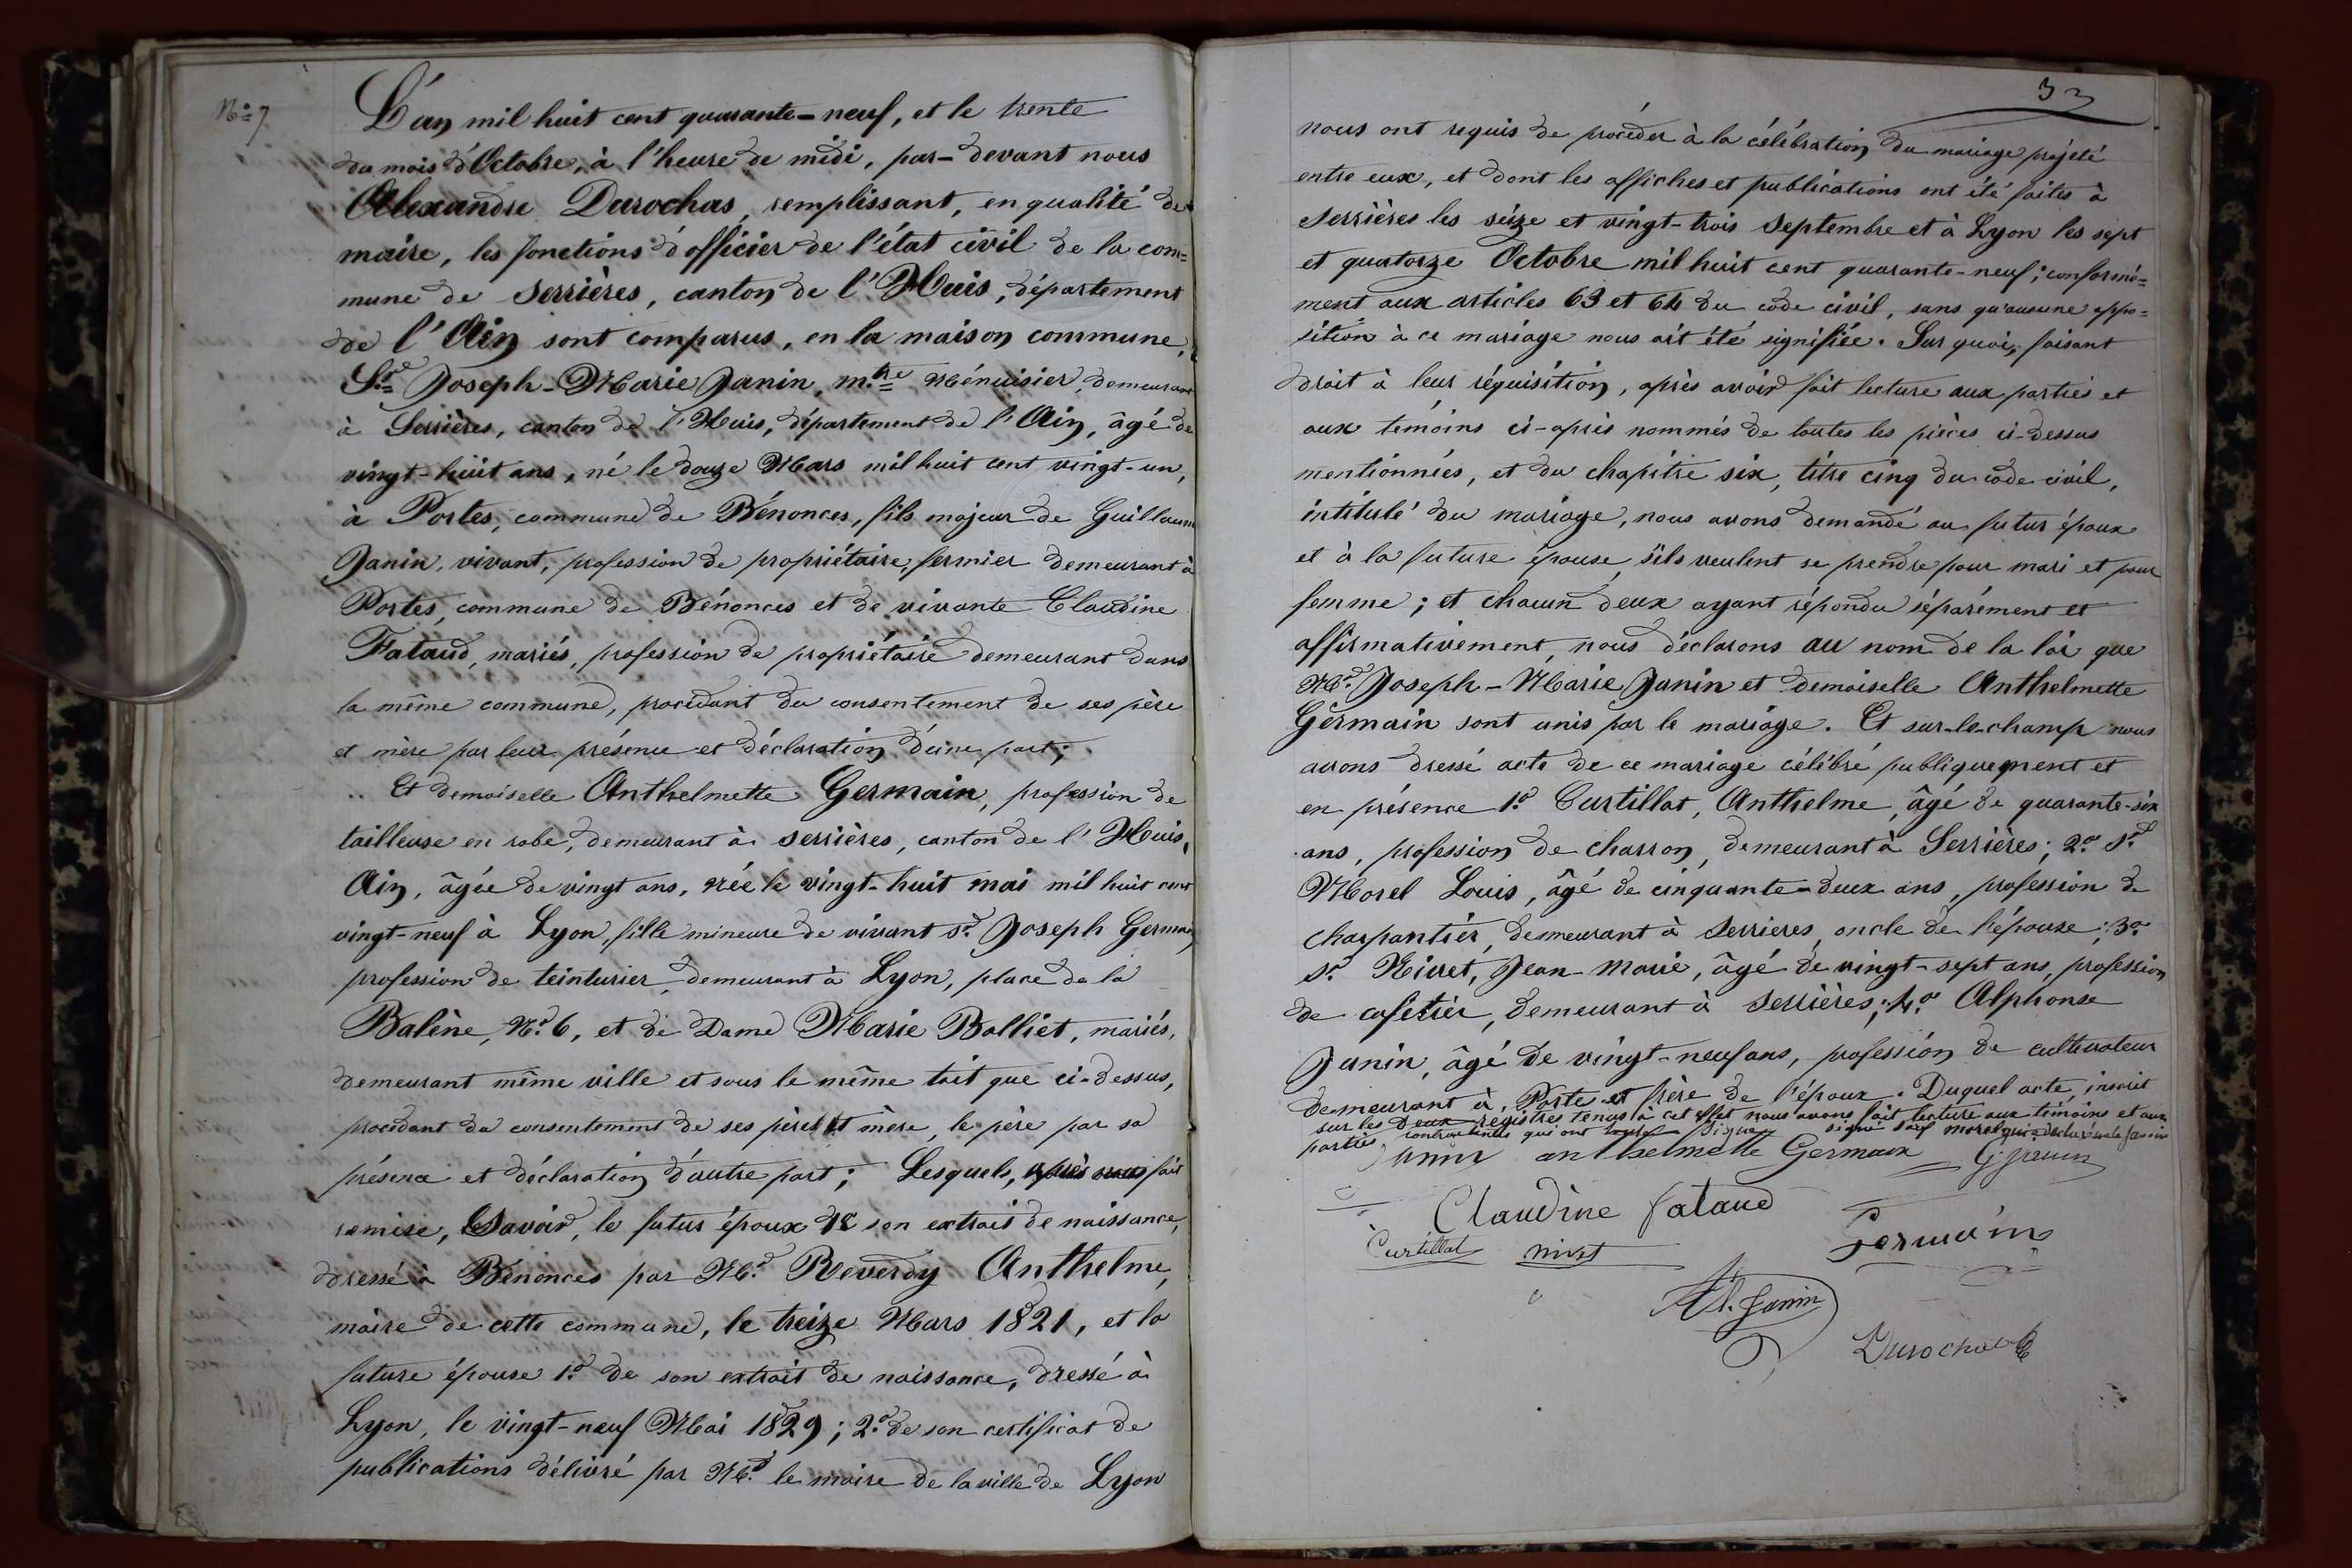 N.o 7
L'an mil huit cent quarante-neuf, et le trente
du mois d'Octobre, à l'heure de midi, par-devant nous
Alexandre Durochas, remplissant, en qualité de
maire, les fonctions d'officier de l'état civil de la com=
mune de Serrières, canton de l'Huis, département
de l'Ain sont comparus, en la maison commune,
S.r Joseph-Marie Janin, m.tre Ménuisier, demeurant
à Serrières, canton de l'Huis, département de l'Ain, âgé de
vingt-huit ans, né le douze Mars mil huit cent vingt-un,
à Portes, commune de Bénonces, fils majeur de Guillaume
Janin, vivant, profession de propriétaire, fermier demeurant à
Portes, commune de Bénonces et de vivante Claudine
Fataud, mariés, profession de propriétaire demeurant dans
la même commune, procédant du consentement de ses père
et mère par leur présence et déclaration d'une part;
Et demoiselle Anthelmette Germain, profession de
tailleuse en robe, demeurant à Serrières, canton de l'Huis,
Ain, âgée de vingt ans, née le vingt-huit mai mil huit cent
vingt-neuf à Lyon, fille mineure de vivant S.r Joseph Germain
profession de teinturier, demeurant à Lyon, place de la
Balène, N.o 6, et de Dame Marie Bolliet, mariés,
demeurant même ville et sous le même toit que ci-dessus,
procédant du consentement de ses père et mère, le père par sa
présence et déclaration d'autre part; Lesquels, après fait
remise, Savoir, le futur époux de son extrait de naissance,
dressé à Bénonces par M.r Reverdy Anthelme,
maire de cette commune, le treize Mars 1821, et la
future épouse 1.o de son extrait de naissance, dressé à
Lyon, le vingt-neuf Mai 1829; 2.o de son certificat de
publications délivré par M.r le maire de la ville de Lyon
33
nous ont requis de procéder à la célébration du mariage projeté
entre eux, et dont les affiches et publications ont été faites à
Serrières les seize et vingt-trois Septembre et à Lyon les sept
et quatorze Octobre mil huit cent quarante-neuf; conformé=
ment aux articles 63 et 64 du code civil, sans qu'aucune oppo=
sition à ce mariage nous ait été signifiée. Sur quoi, faisant
droit à leur réquisition, après avoir fait lecture aux parties et
aux témoins ci-après nommés de toutes les pièces ci-dessus
mentionnées, et du chapitre six, titre cinq du code civil,
intitulé du mariage, nous avons demandé au futur époux
et à la future épouse, s'ils veulent se prendre pour mari et pour
femme; et chacun deux ayant répondu séparément et
affirmativement, nous déclarons au nom de la loi que
M.r Joseph-Marie Janin et demoiselle Anthelmette
Germain sont unis par le mariage. Et sur-le-champ nous
avons dressé acte de ce mariage célébré publiquement et
en présence 1.o Curtillat, Anthelme, âgé de quarante-six
ans, profession de charron, demeurant à Serrières; 2.o S.r
Morel Louis, âgé de cinquante-deux ans, profession de
charpantier, demeurant à Serrieres, oncle de l'épouse; 3.o
S.r Nivet, Jean-Marie, âgé de vingt-sept ans, profession
de cafetier, demeurant à Serrières; 4.o Alphonse
Janin, âgé de vingt-neuf ans, profession de cultivateur
demeurant à Porte et frère de l'époux. Duquel acte, inscrit
sur les deux registres tenus à cet effet nous avons fait lecture aux témoins et aux
parties contractantes qui ont signé sauf morel qui a déclaré ne le savoir
Janin anthelmette Germain G Janin
Claudine fataud
Curtillat nivet Germain
Al. Janin
Durochas